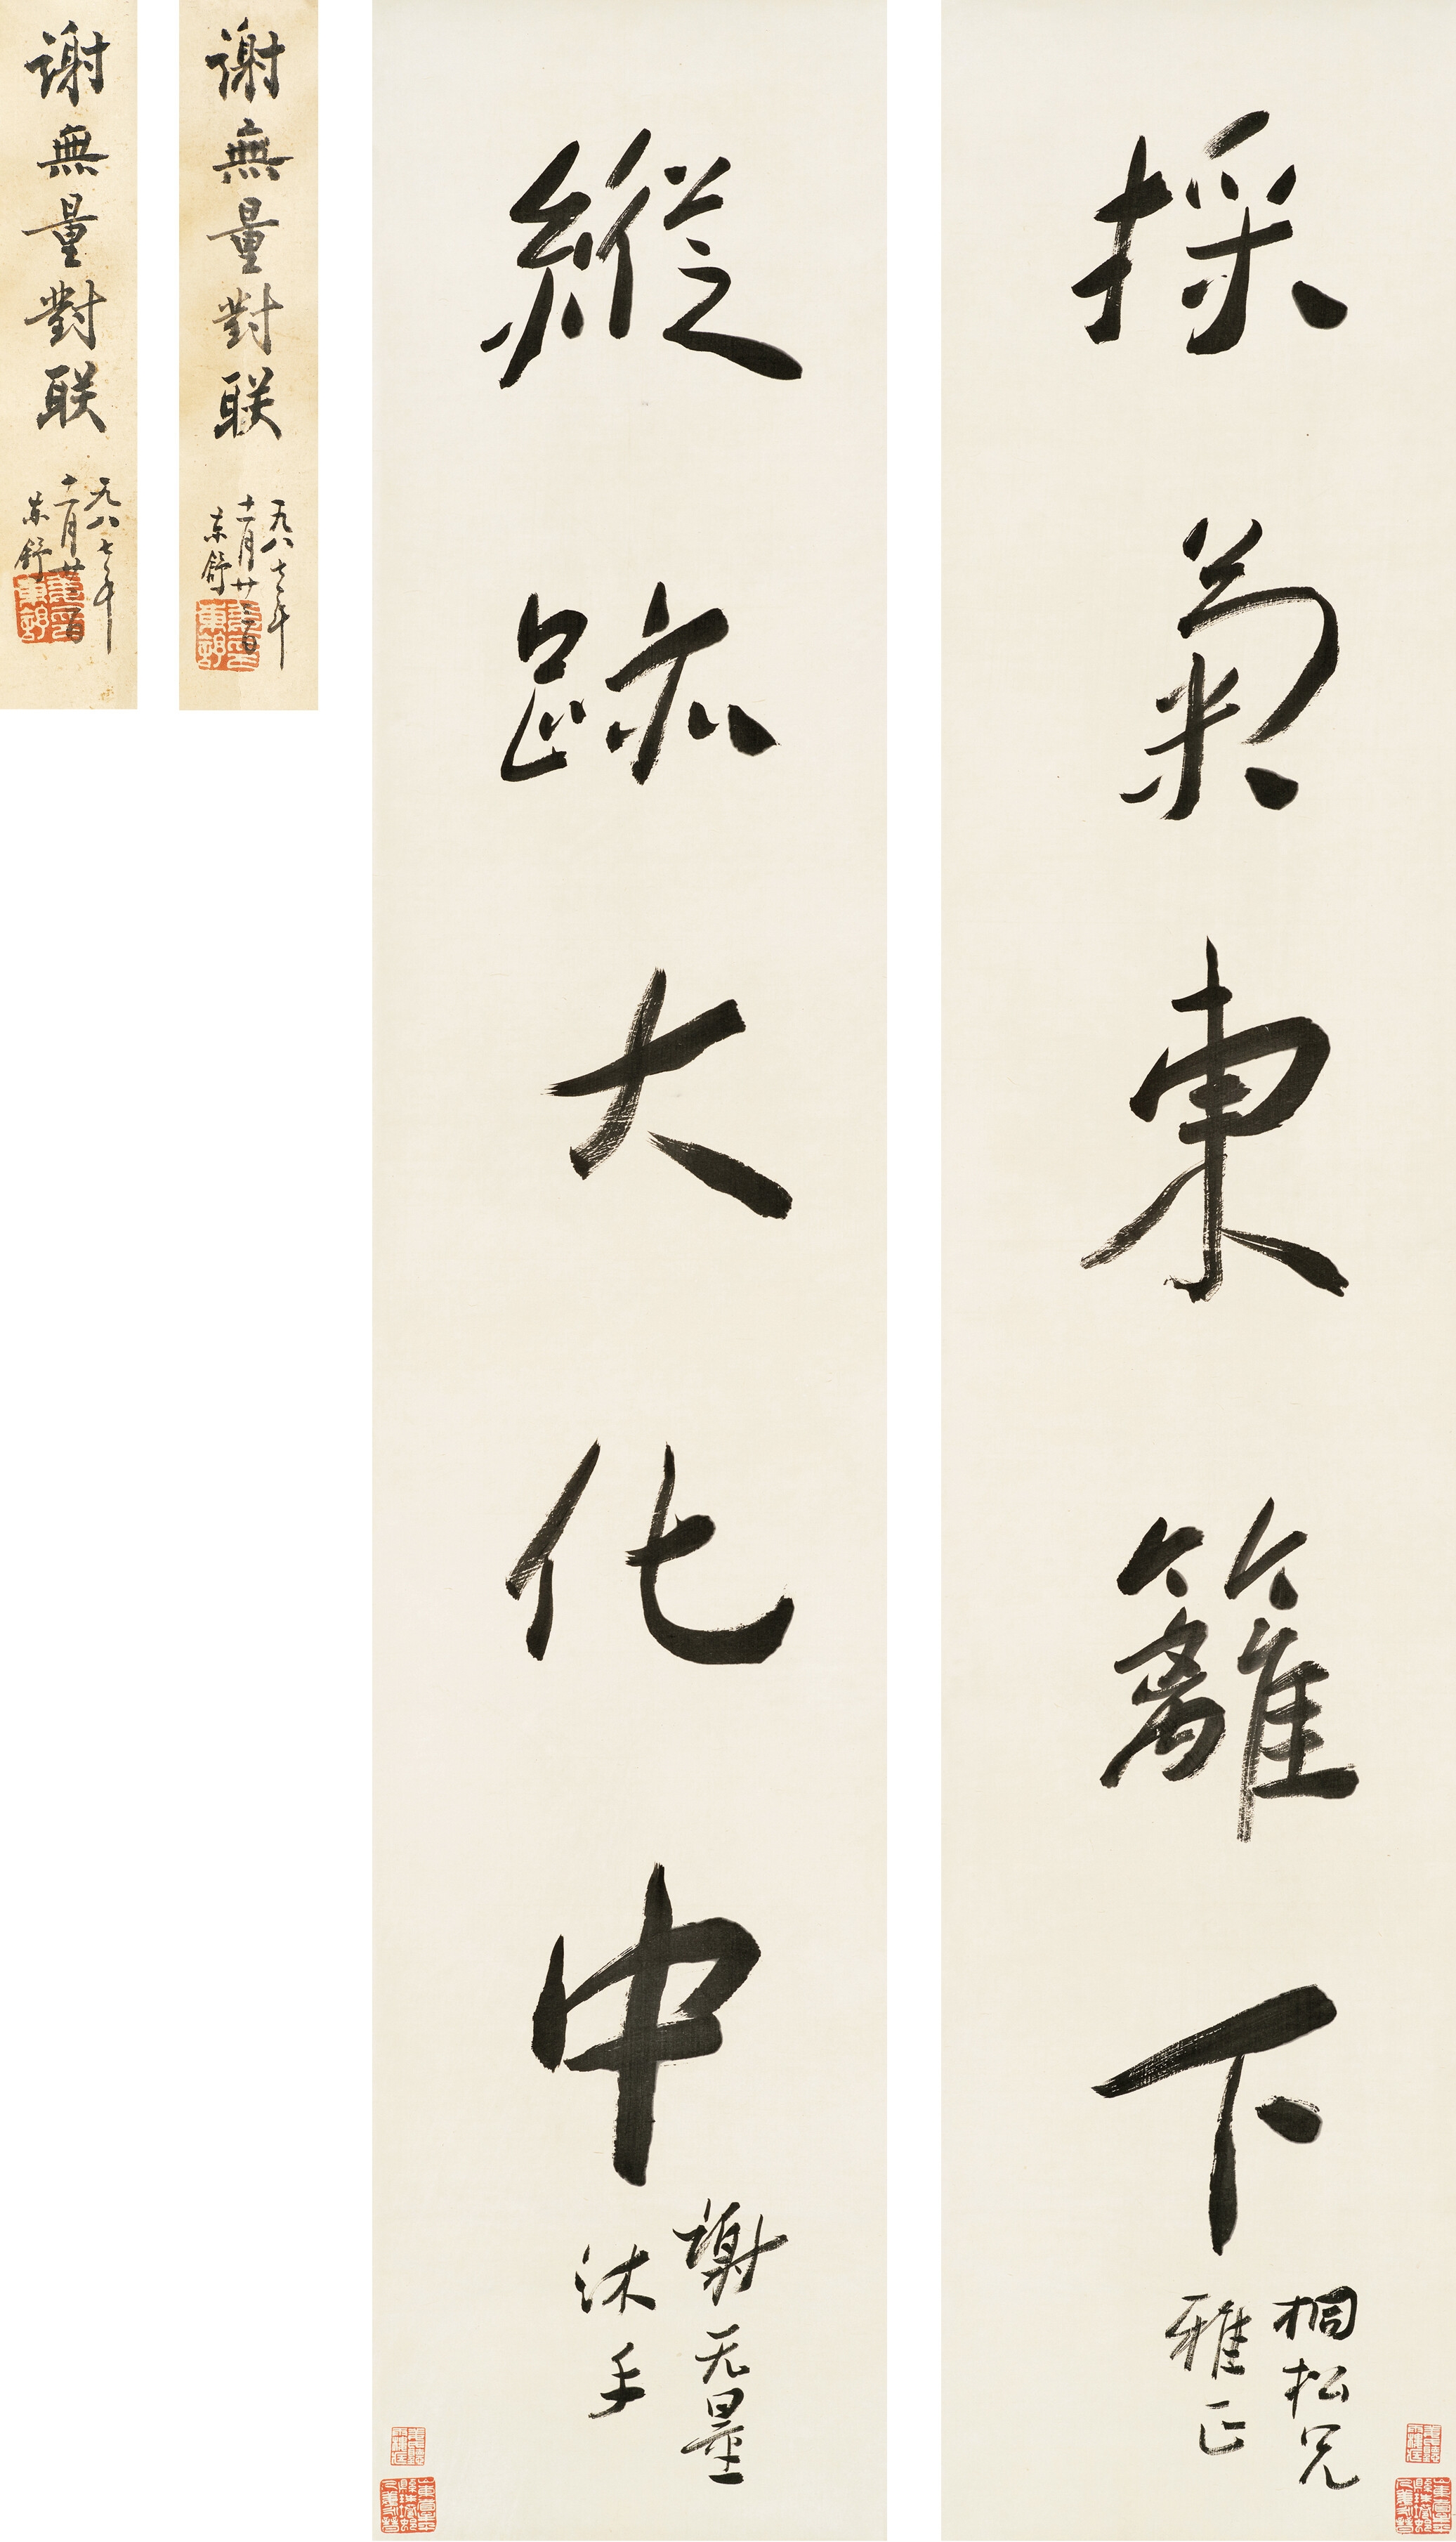 採菊東籬下
桐松兄
雅正
縱跡大化中
謝无量
沐手
謝無量對联
一九八七年
十一月廿三日
東舒
謝無量對联
一九八七年
十一月廿三日
東舒